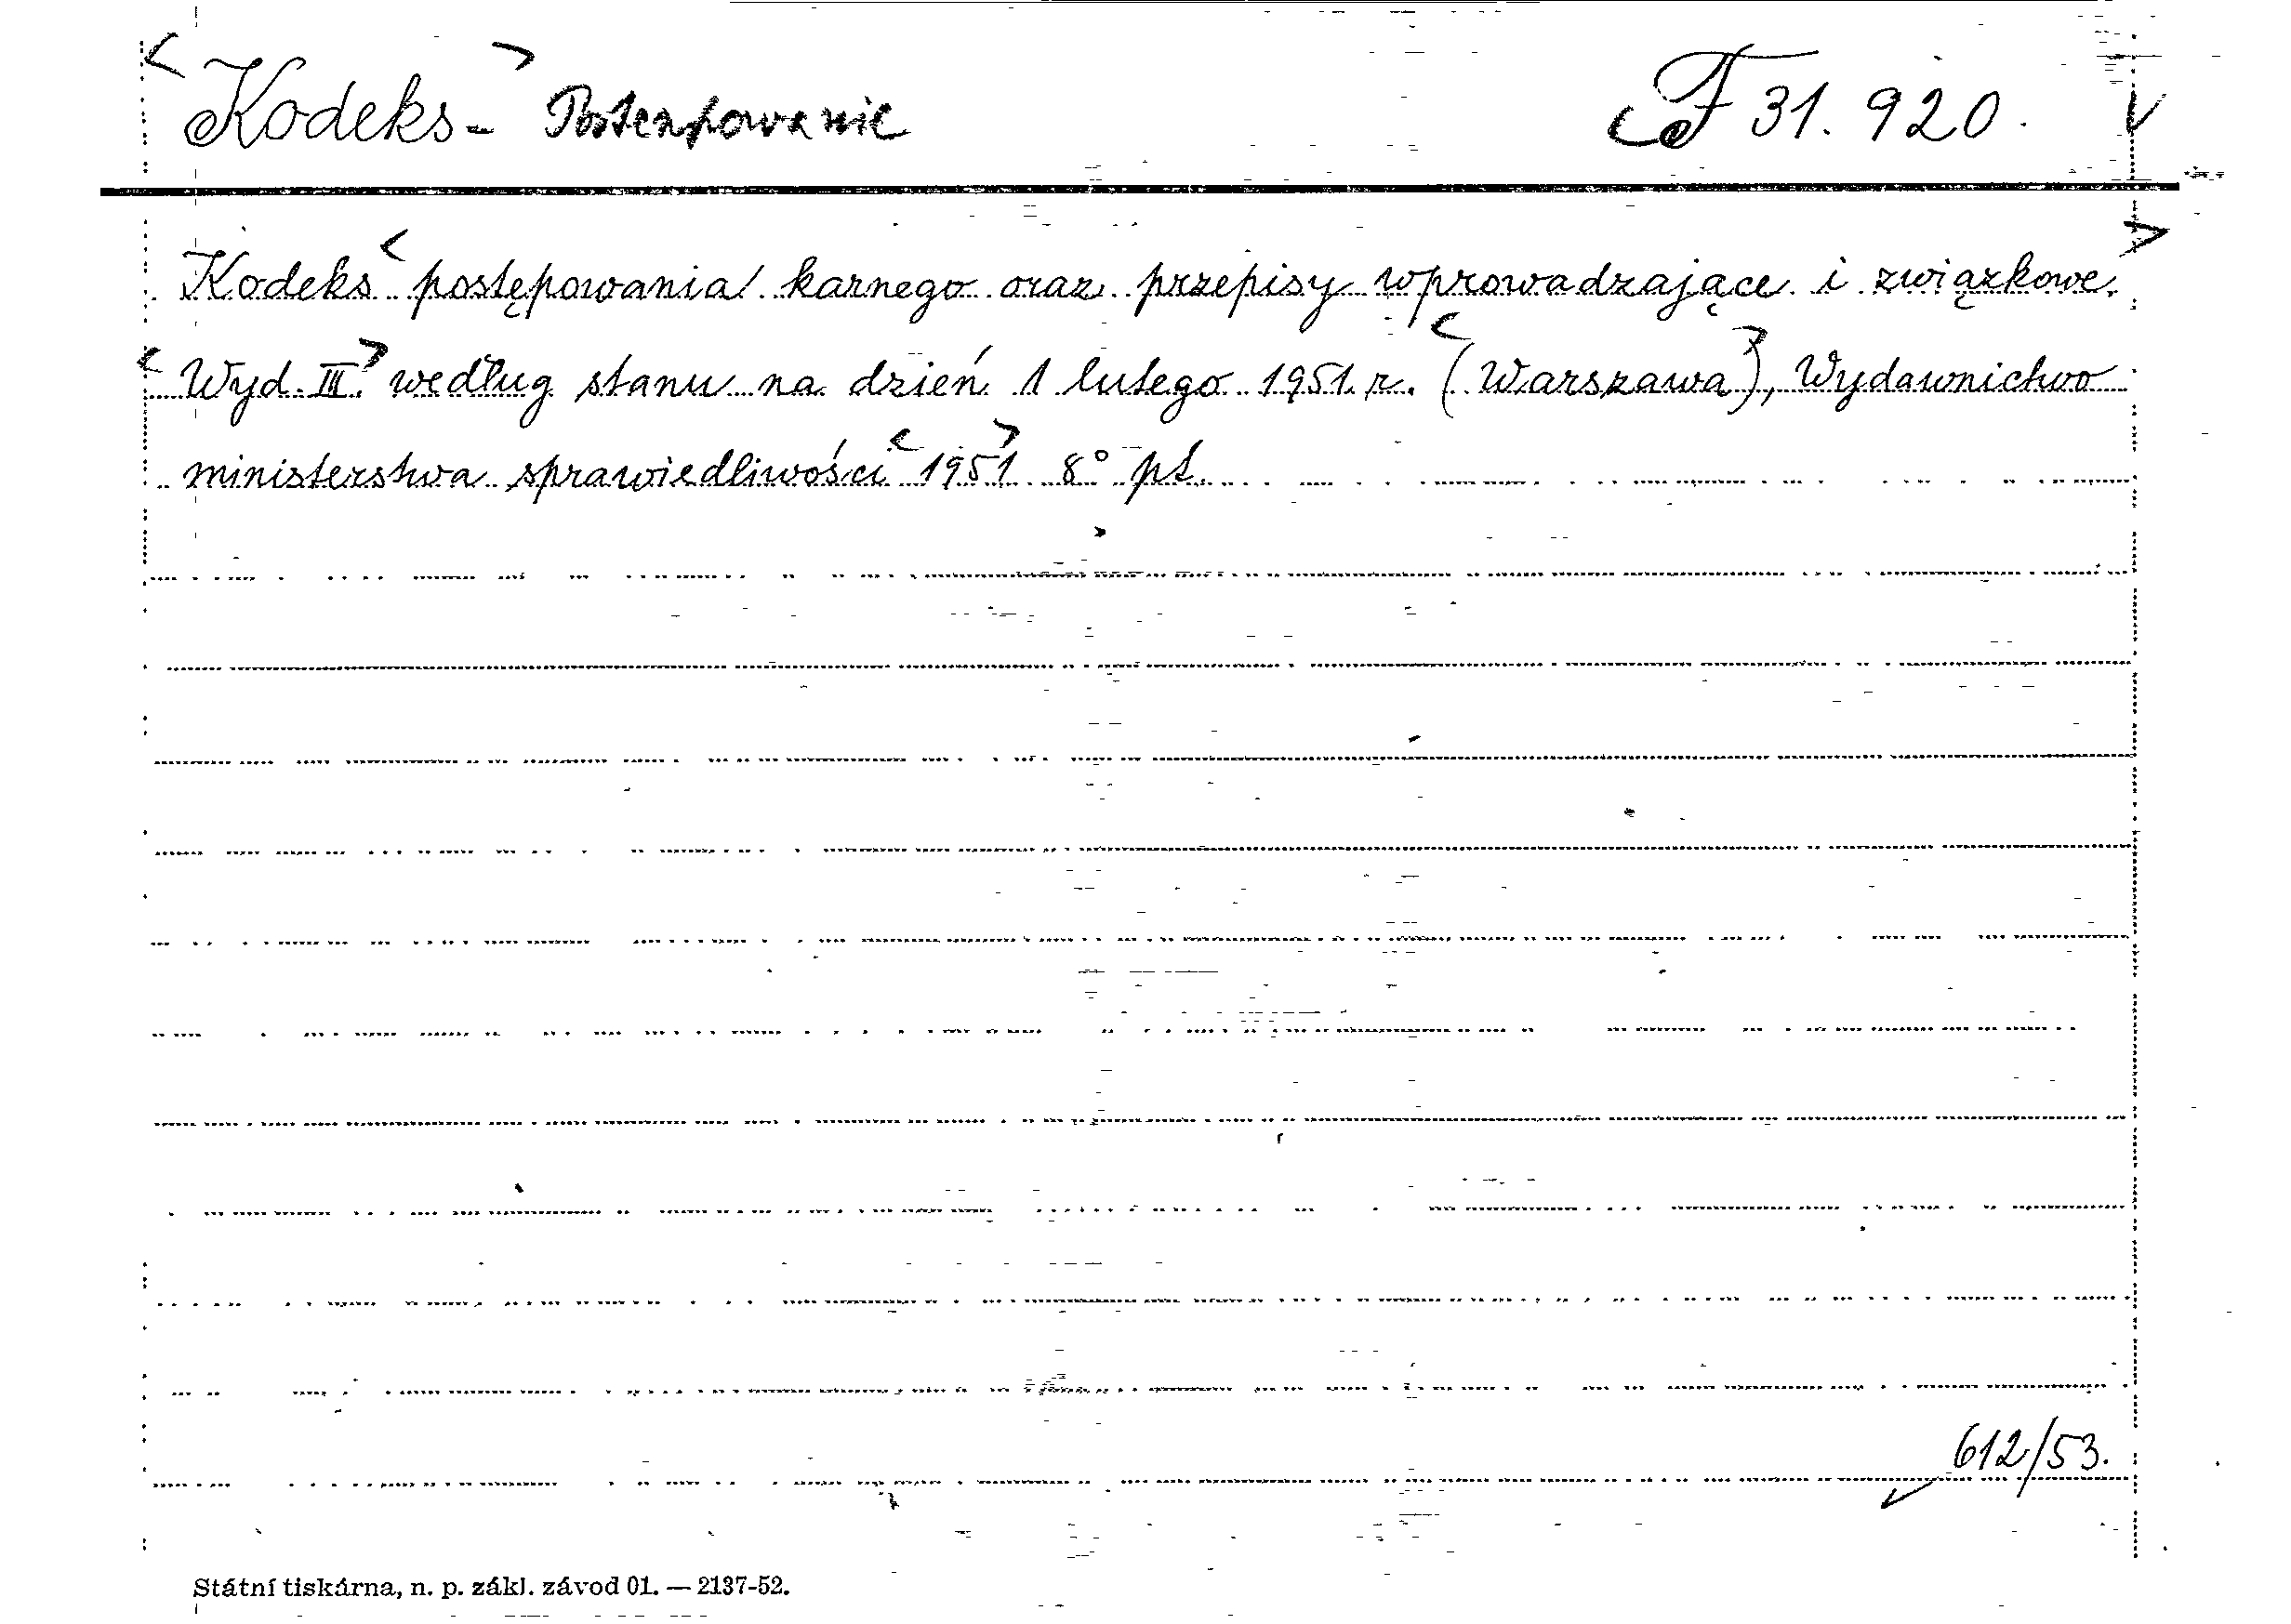 <Kodeks-> Postempowanie F 31.920. V
Kodeks <postępowania/ karnego oraz przepisy wprowadzające i związkowe.>
<Wyd. III.> według stanu na dzień 1 lutego 1951 r. <(Warszawa)>, Wydawnictwo
ministerstwa sprawiedliwości <1951> 8° pt.
612/53.
Státní tiskárna, n. p. zákl. závod 01. — 2137-52.